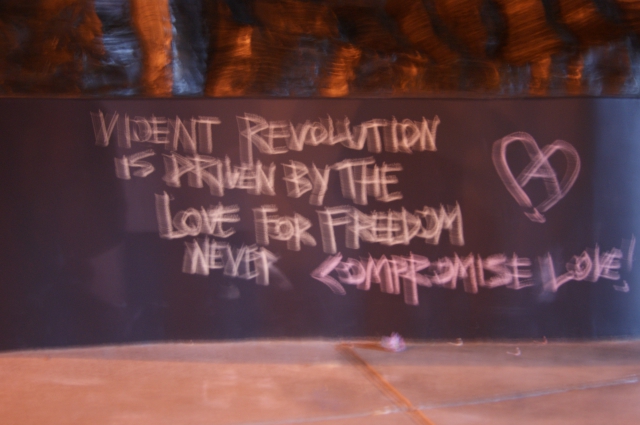 VIOLENT REVOLUTION
IS DRIVEN BY THE
LOVE FOR FREEDOM
NEVER COMPROMISE LOVE!
A